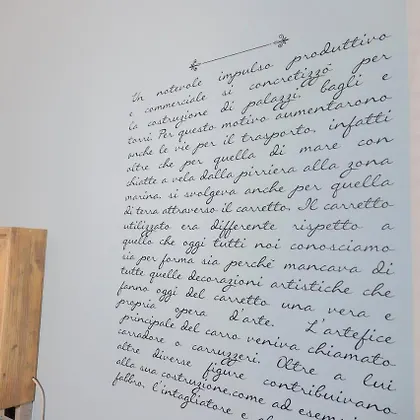 Un notevole impulso produttivo
e commerciale si concretizzò per
la costruzione di palazzi, bagli e
torri. Per questo motivo aumentarono
anche le vie per il trasporto, infatti
oltre che per quella di mare con
chiatte a vela dalla pirriera alla zona
marina, si svolgeva anche per quella
di terra attraverso il carretto. Il carretto
utilizzato era differente rispetto a
quello che oggi tutti noi conosciamo
sia per forma sia perché mancava di
tutte quelle decorazioni artistiche che
fanno oggi del carretto una vera e
propria opera d'arte. L'artefice
principale del carro veniva chiamato
carradore o carruzzeri. Oltre a lui
altre diverse figure contribuivano
alla sua costruzione, come ad esempio
fabbro, l'intagliatore e